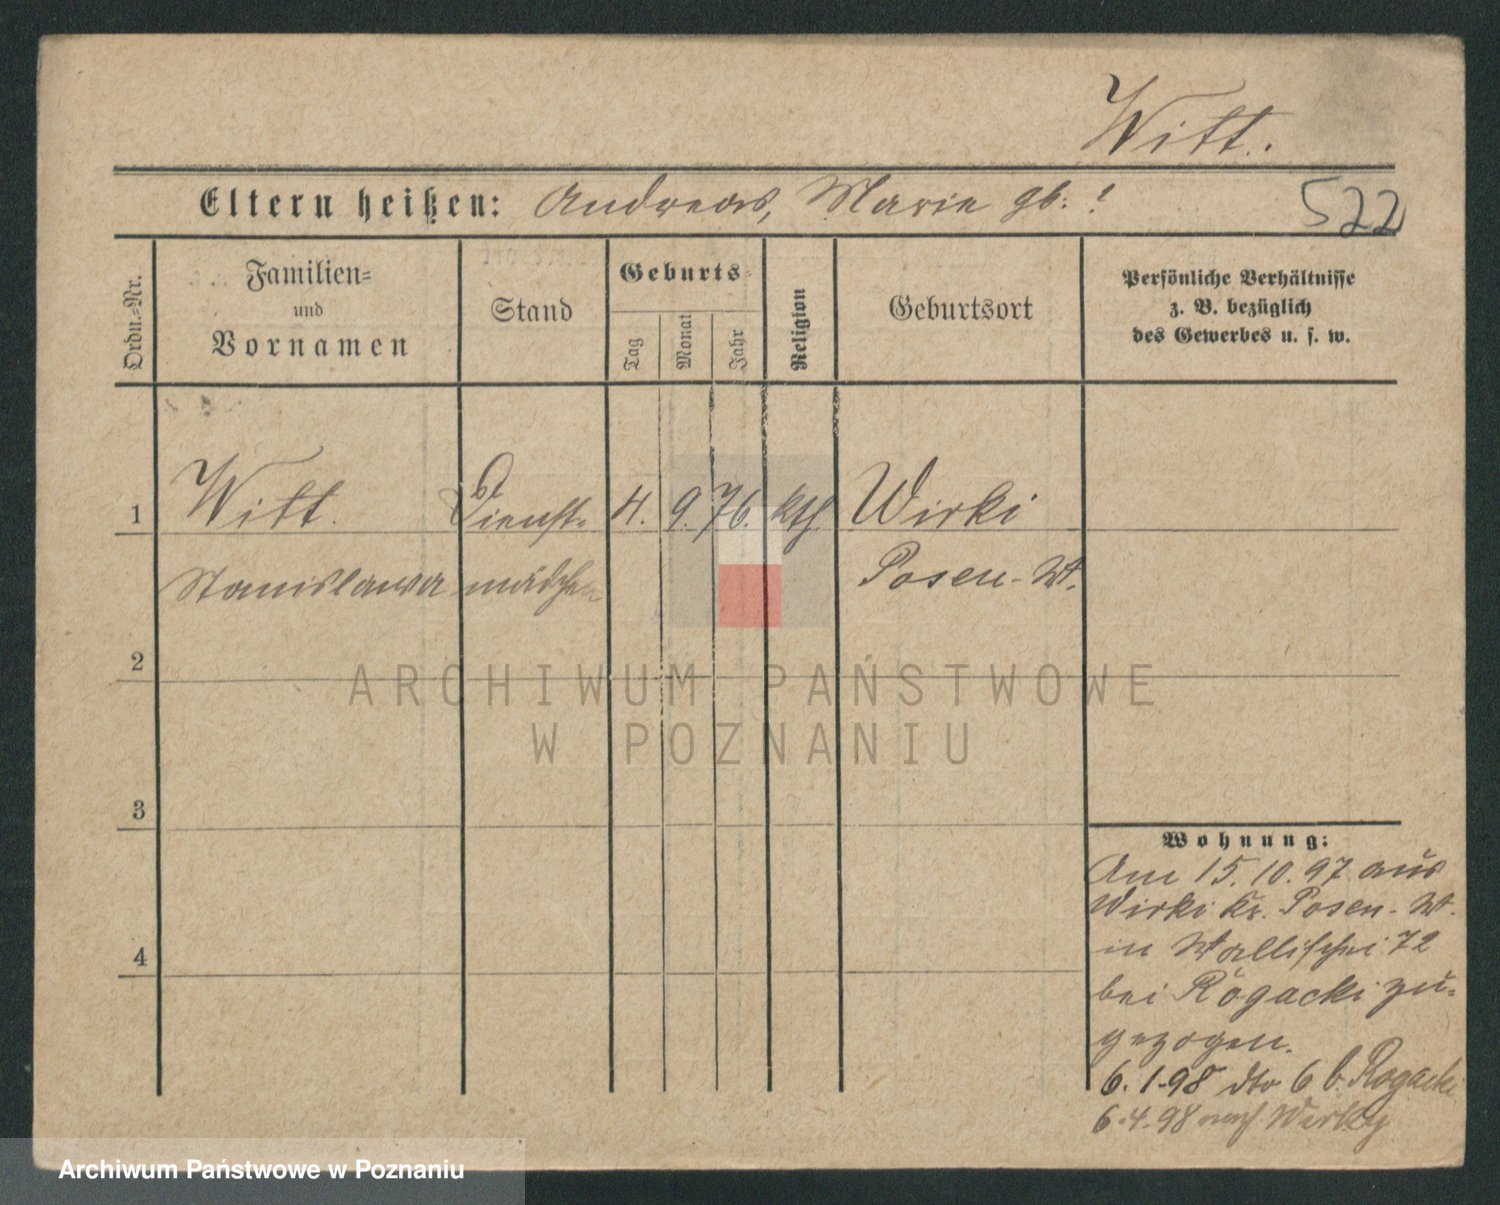 Witt.
Eltern heißen: Andreas, Marie gb: !
522
Ordn.=Nr.
Familien=
und
Vornamen
Stand
Geburts=
Tag
Monat
Jahr
Religion
Geburtsort
Persönliche Verhältnisse
z. B. bezüglich
des Gewerbes u. s. w.
1 Witt. Dienst= 4. 9. 76. kth. Wirki
Stanislawa mädchen Posen-Wt.
2
ARCHIWUM PAŃSTWOWE
W POZNANIU
3
Wohnung:
Am 15.10.97 aus
Wirki Kr. Posen-Wt.
in Wallischei 72
4
bei Rogacki zu=
gezogen.
6.1.98 dto 6 b. Rogacki
6.4.98 nach Wirky
Archiwum Państwowe w Poznaniu